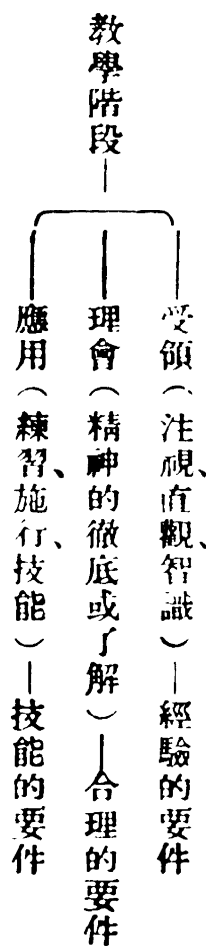 教學階段
受領(注視、直觀、智識)—經驗的要件
理會(精神的徹底或了解)—合理的要件
應用(練習、施行、技能)—技能的要件